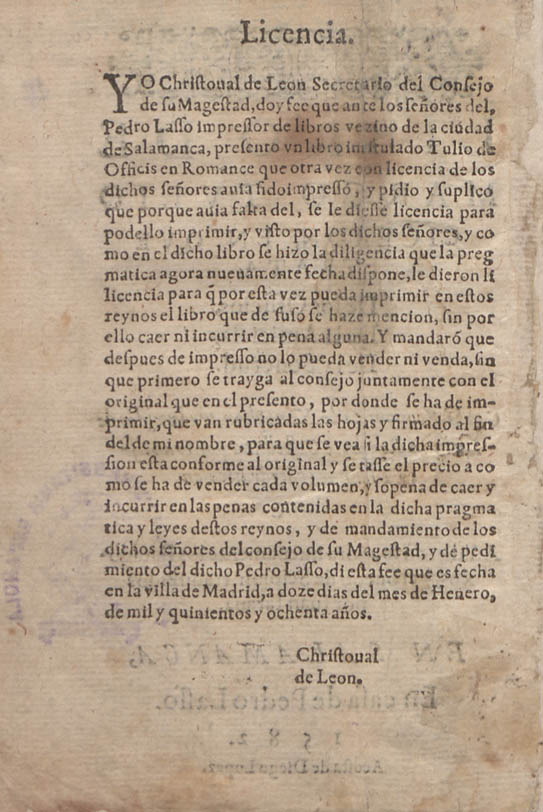 Licencia.
YO Christoual de Leon Secretario del Consejo
de su Magestad, doy fee que ante los señores del,
Pedro Lasso impressor de libros vezino de la ciudad
de Salamanca, presento vn libro intitulado Tulio de
Officis en Romance que otra vez con licencia de los
dichos señores auia sido impresso, y pidio y suplico
que porque auia falta del, se le diesse licencia para
podello imprimir, y visto por los dichos señores, y co
mo en el dicho libro se hizo la diligencia que la preg
matica agora nueuamente fecha dispone, le dieron li
licencia para q̃ por esta vez pueda imprimir en estos
reynos el libro que de suso se haze mencion, sin por
ello caer ni incurrir en pena alguna. Y mandarõ que
despues de impresso no lo pueda vender ni venda, sin
que primero se trayga al consejo juntamente con el
original que en el presento, por donde se ha de im-
primir, que van rubricadas las hojas y firmado al fin
del de mi nombre, para que se vea si la dicha impres-
sion esta conforme al original y se tasse el precio a co
mo se ha de vender cada volumen, y sopena de caer y
incurrir en las penas contenidas en la dicha pragma
tica y leyes destos reynos, y de mandamiento de los
dichos señores del consejo de su Magestad, y de pedi
miento del dicho Pedro Lasso, di esta fee que es fecha
en la villa de Madrid, a doze dias del mes de Henero,
de mil y quinientos y ochenta años.
Christoual
de Leon.
EN SALAMANCA,
En casa de Pedro Lasso.
1582.
A costa de Diego Lopez.